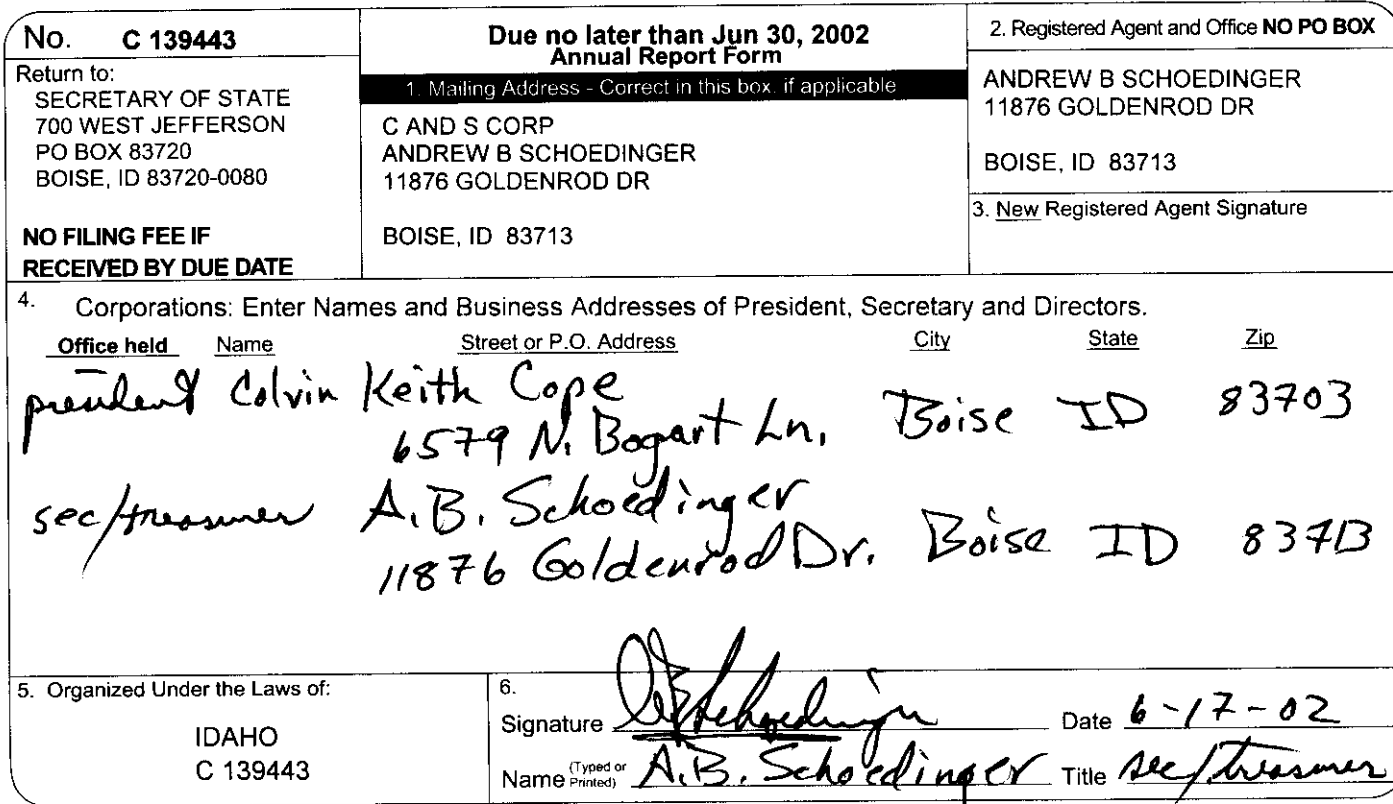 No. C 139443
Return to:
SECRETARY OF STATE
700 WEST JEFFERSON
PO BOX 83720
BOISE, ID 83720-0080
NO FILING FEE IF
RECEIVED BY DUE DATE
Due no later than Jun 30, 2002
Annual Report Form
1. Mailing Address - Correct in this box, if applicable
C AND S CORP
ANDREW B SCHOEDINGER
11876 GOLDENROD DR
BOISE, ID 83713
2. Registered Agent and Office NO PO BOX
ANDREW B SCHOEDINGER
11876 GOLDENROD DR
BOISE, ID 83713
3. New Registered Agent Signature
4. Corporations: Enter Names and Business Addresses of President, Secretary and Directors.
Office held Name Street or P.O. Address City State Zip
president Colvin Keith Cope
6579 N. Bogart Ln. Boise ID 83703
sec/treasurer A.B. Schoedinger
11876 Goldenrod Dr. Boise ID 83713
5. Organized Under the Laws of:
IDAHO
C 139443
6.
Signature AB Schoedinger Date 6-17-02
Name (Typed or Printed) A.B. Schoedinger Title sec/treasurer